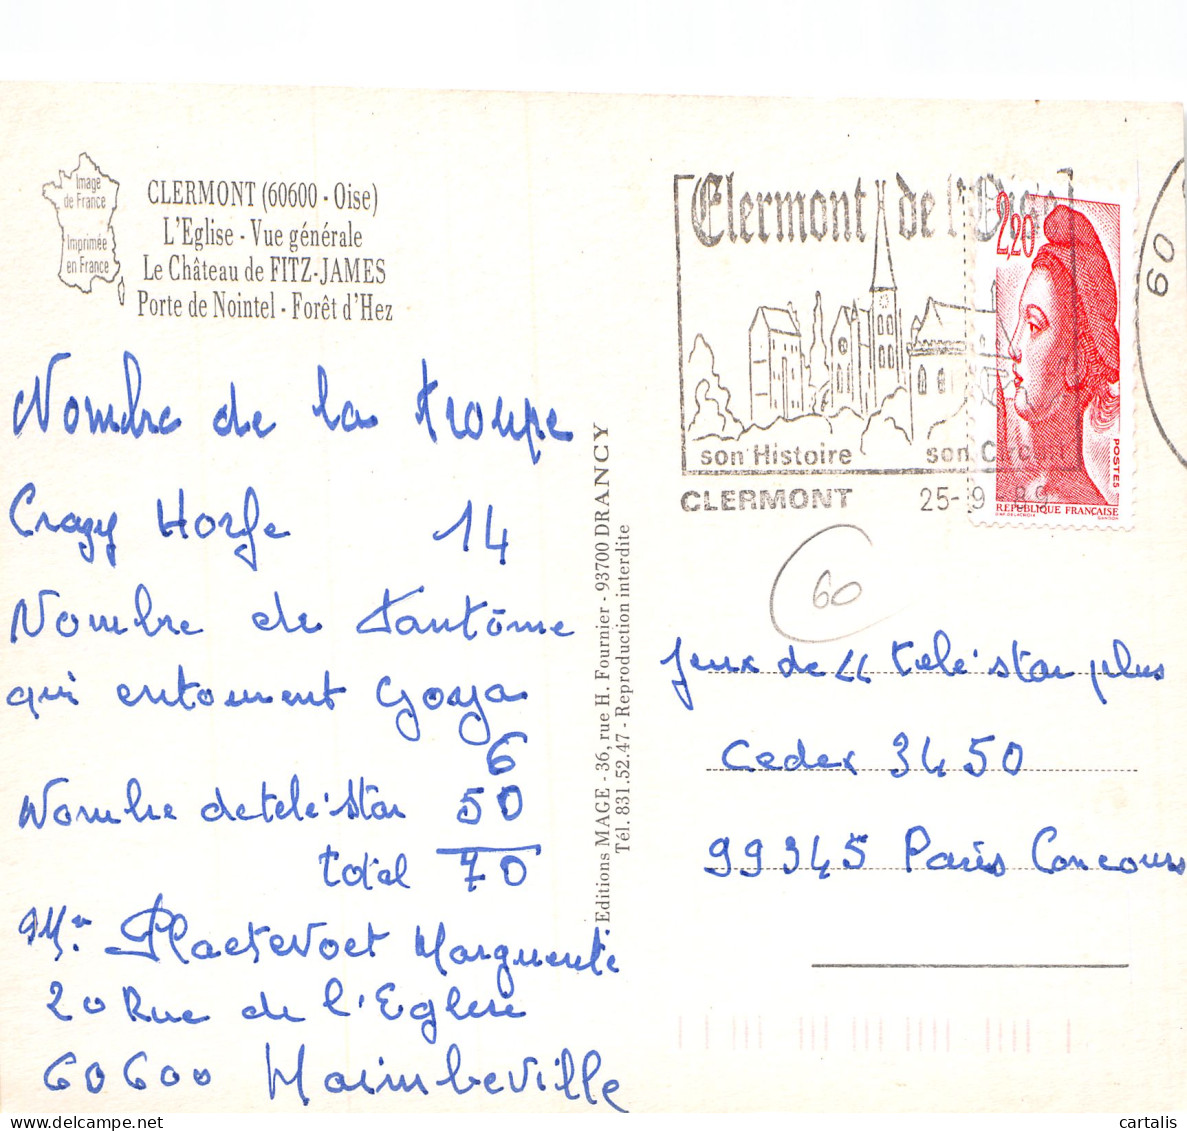 Image
de France
Imprimée
en France
CLERMONT (60600 - Oise)
L'Eglise - Vue générale
Le Château de FITZ-JAMES
Porte de Nointel - Forêt d'Hez
Clermont de l'Oise
son Histoire son Circuit
CLERMONT 25-9 89
60
2,20
POSTES
REPUBLIQUE FRANCAISE
60
Nombre de la troupe
Crazy Horse 14
Nombre de Fantôme
qui entourent Goya
6
Nombre de tele'star 50
total 70
Editions MAGE - 36, rue H. Fournier - 93700 DRANCY
Tél. 831.52.47 - Reproduction interdite
Jeux de tele'star plus
Cedex 3450
99345 Paris Concours
Plactevoet Marguerite
20 Rue de l'Eglise
60600 Maimbeville
www.delcampe.net
cartalis